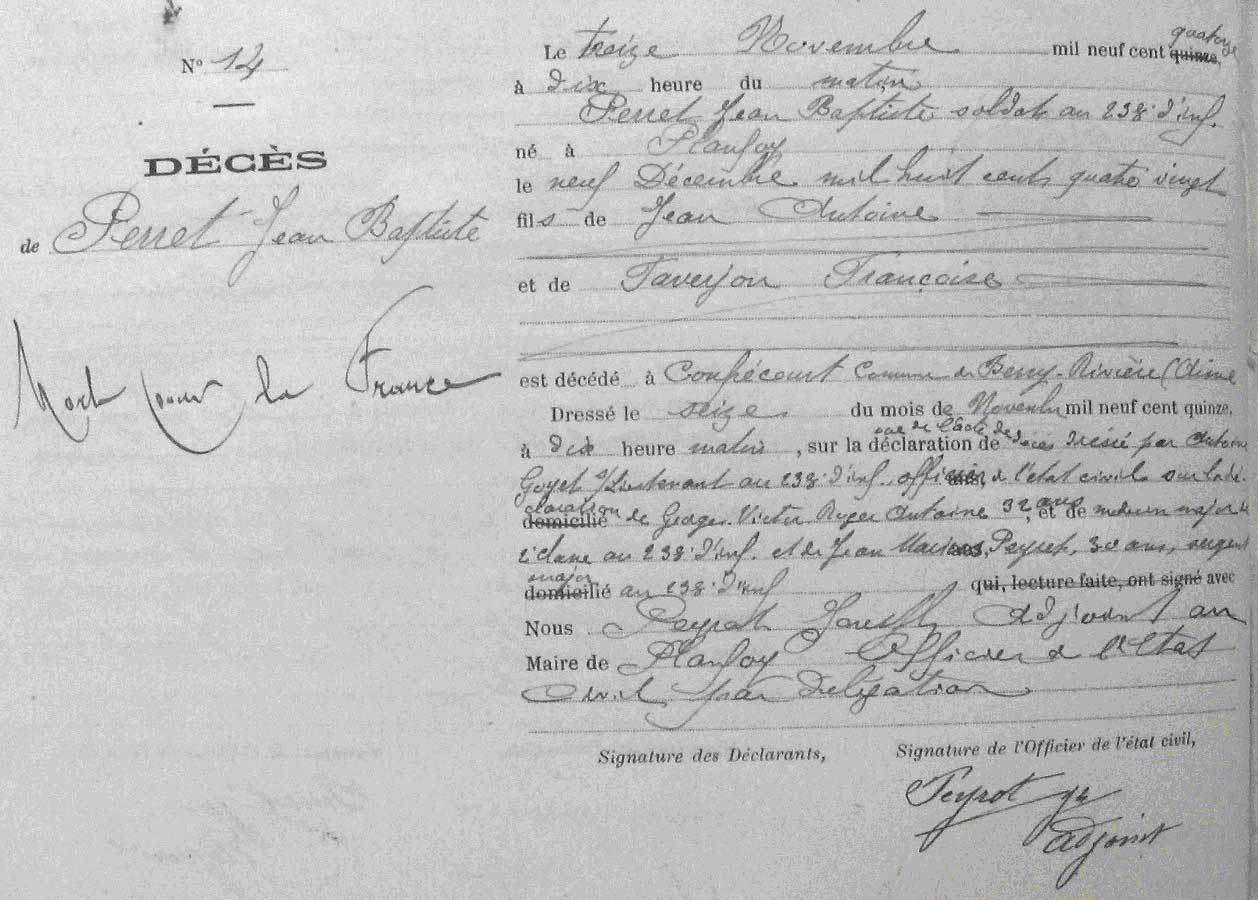 N° 14
DÉCÈS
de Perret Jean Baptiste
Mort pour la France
Le treize Novembre mil neuf cent quinze, quatorze
à dix heure du matin
Perret Jean Baptiste soldat au 238e d'inf.
né à Planfoy
le neuf Décembre mil huit cents quatre vingt
fils de Jean Antoine
et de Taverjon Françoise
est décédé à Coupécourt Commune de Berry-Rivière (Aisne
Dressé le seize du mois de Novembre mil neuf cent quinze,
à dix heure matin, sur la déclaration de vue de l'acte de décès dressé par Antoine
Goyet s/Lieutenant au 238e d'inf. officier ans, de l'état civil sur la dé
claration domicilié de Georges Victor Roger Antoine 32 ans, et de médecin major de
2e classe au 238e d'inf. et de Jean ans, Peyret, 30 ans, sergent
major domicilié au 238e d'inf qui, lecture faite, ont signé avec
Nous Peyrot Joseph Adjoint au
Maire de Planfoy Officier de l'Etat
Civil par délégation
Signature des Déclarants,
Signature de l'Officier de l'état civil,
Peyrot
adjoint